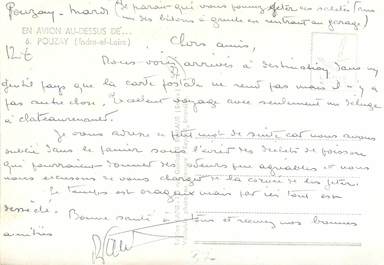 Pouzay - mardi (Je parais que vous pouvez jeter ces saletés dans
un des bidons à gauche en rentrant au garage)
EN AVION AU-DESSUS DE...
6. POUZAY (Indre-et-Loire)
Chers amis,
Nous voici arrivés à destination dans un
gentil pays que la carte postale ne rend pas mais il n'y a
pas autre chose. Excellent voyage avec seulement un déluge
à Chateaurenault.
Je vous adresse ce petit mot de suite car nous avons
oublié dans le panier sous l'évier des déchets de poisson
qui pourraient donner des odeurs peu agréables et nous
nous excusons de vous charger de la corvée de les jeter.
Le temps est orageux mais par ici tout est
desséché. Bonne santé à tous et recevez nos bonnes
amitiés